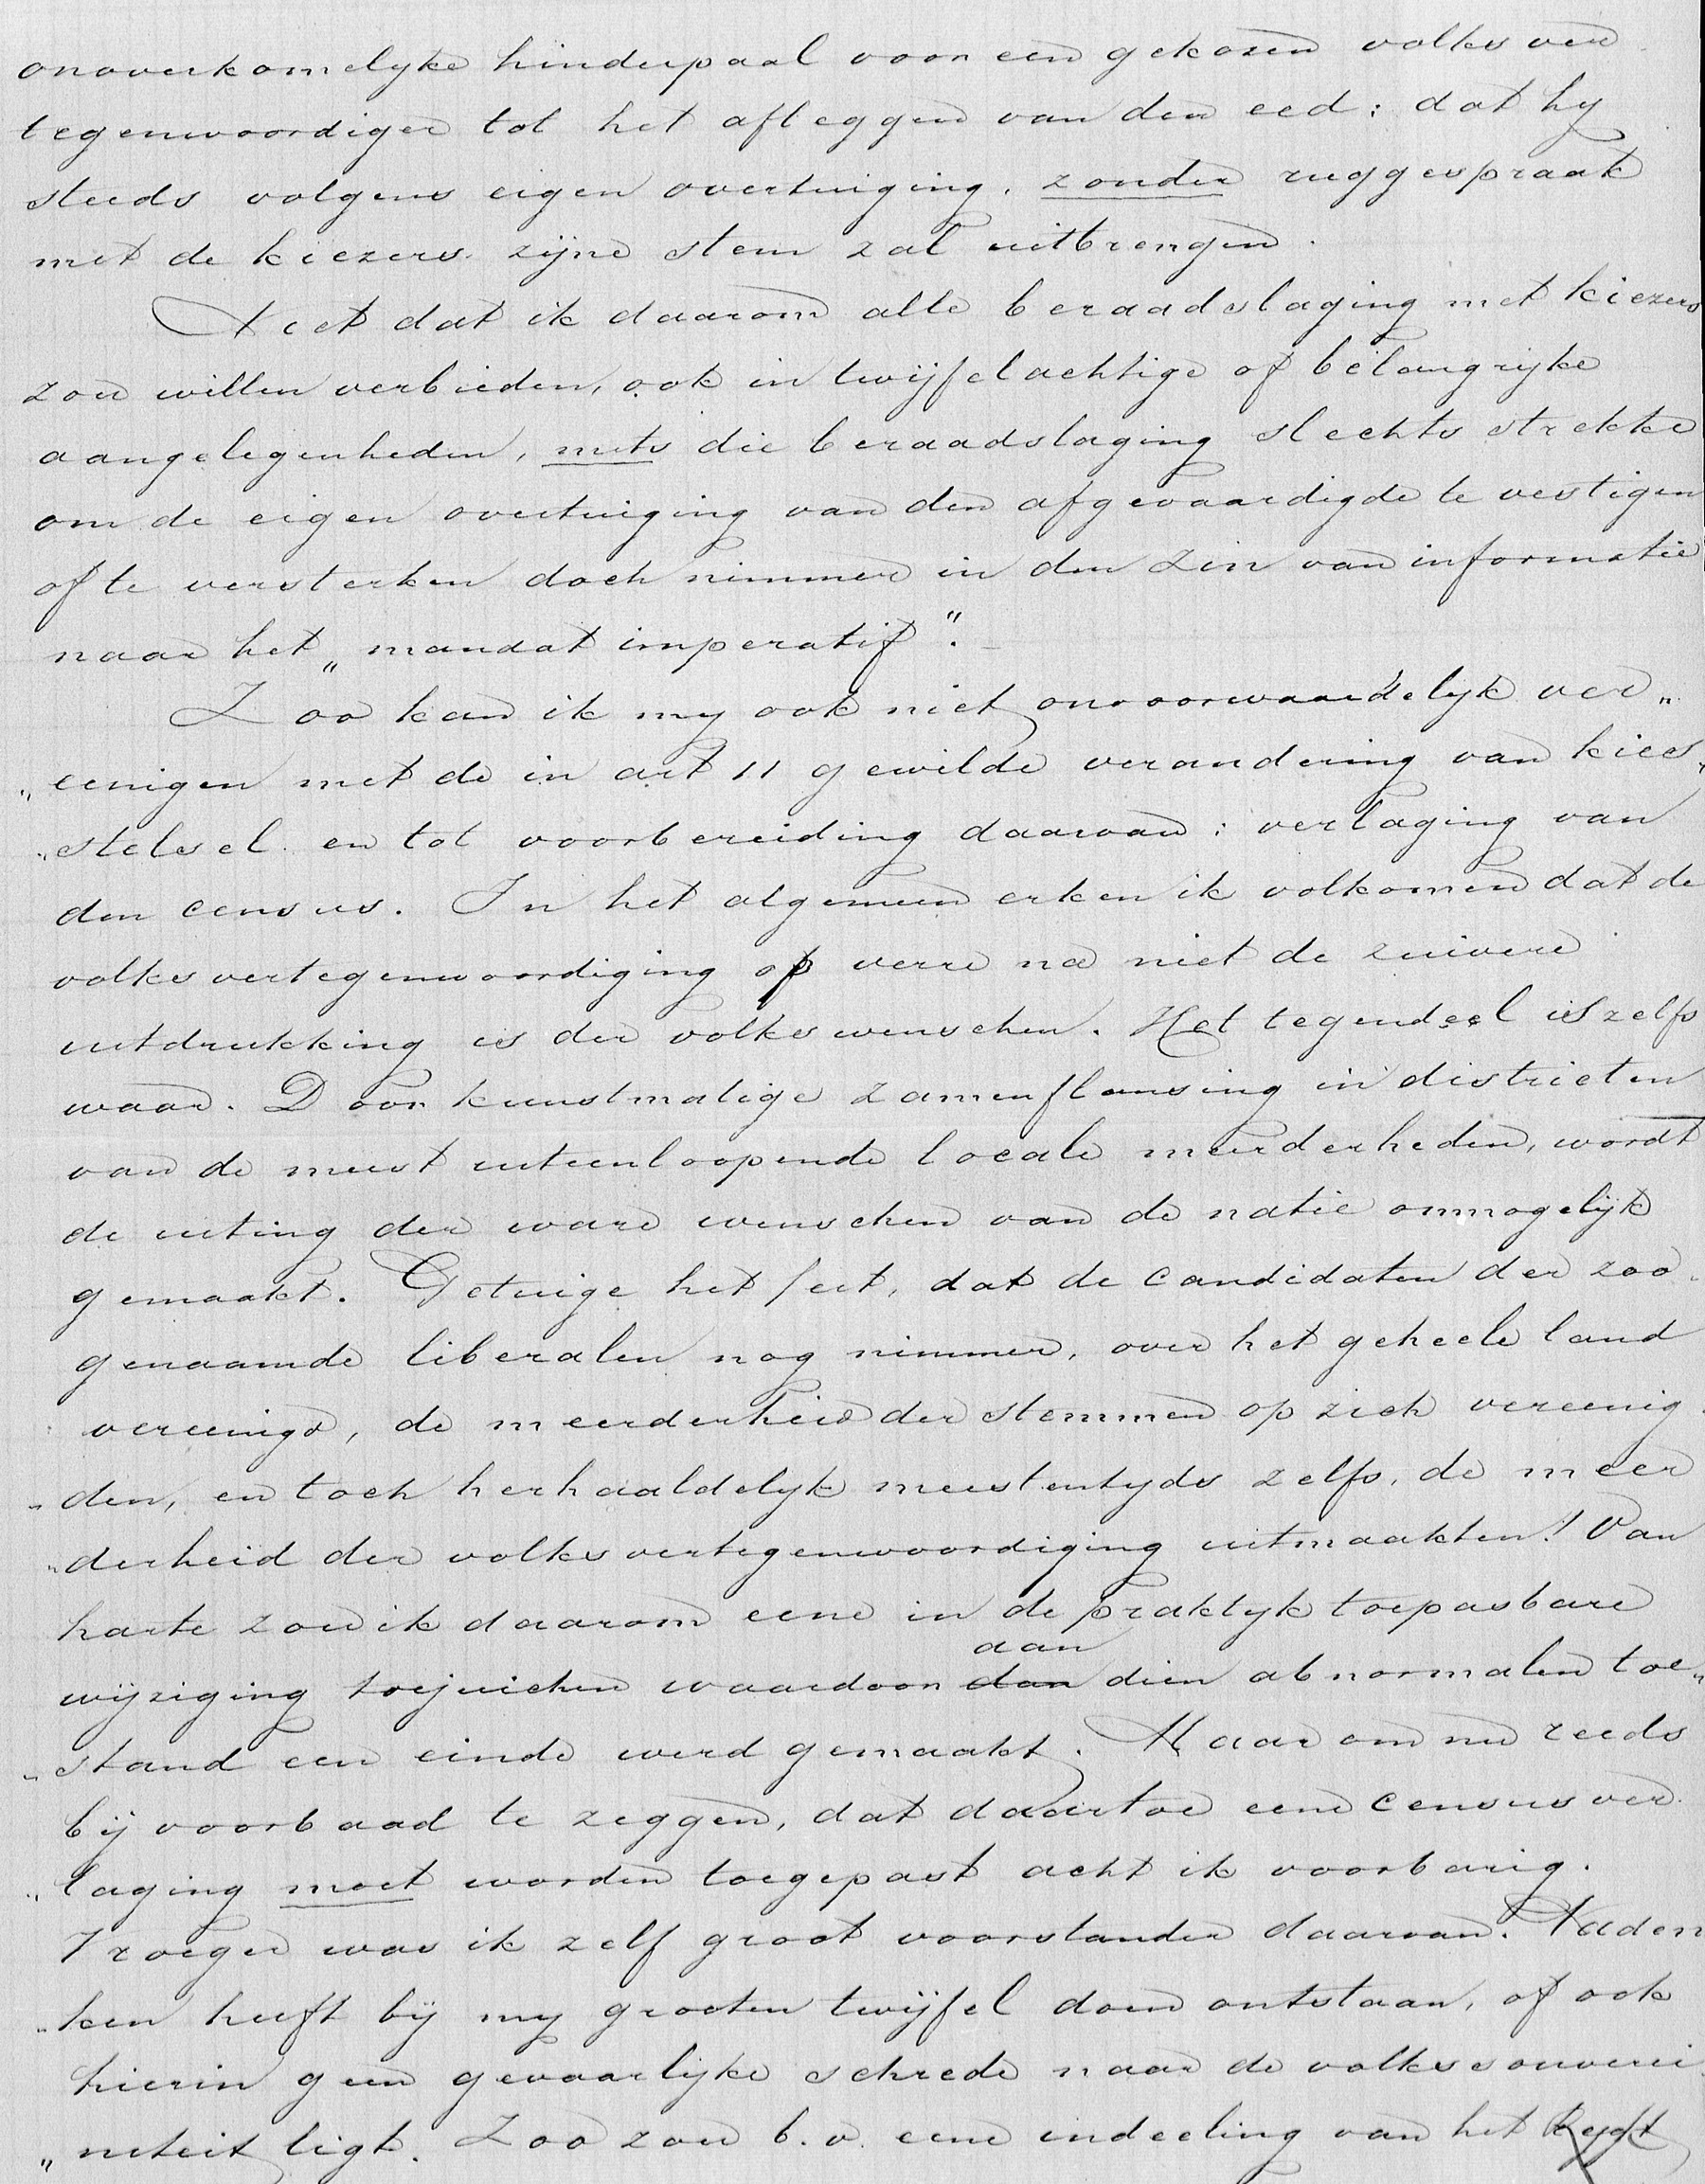 onoverkomelyke hinderpaal voor een gekozen volksver
tegenwoordiger tot het afleggen van den eed: dat hy
steeds volgens eigen overtuiging, zonder ruggespraak
met de kiezers zijne stem zal uitbrengen.
Niet dat ik daarom alle beraadslaging met kiezers
zou willen verbieden, ook in twijfelachtige of belangrijke
aangelegenheden, mits die beraadslaging slechts strekke
om de eigen overtuiging van den afgevaardigde te vestigen
of te versterken doch nimmer in den zin van informatie
naar het „mandat imperatif".
Zoo kan ik my ook niet onvoorwaardelyk ver„
„eenigen met de in art 11 gewilde verandering van kies„
„stelsel en tot voorbereiding daarvan: verlaging van
den census. In het algemeen erken ik volkomen dat de
volksvertegenwoordiging op verre na niet de zuivere
uitdrukking is der volkswenschen. Het tegendeel is zelfs
waar. Door kunstmatige zamenflansing in districten
van de meest uiteenloopende locale meerderheden, wordt
de uiting der ware wenschen van de natie onmogelijk
gemaakt. Getuige het feit, dat de candidaten der zoo
genaamde liberalen nog nimmer, over het geheele land
vereenigd, de meerderheid der stemmen op zich vereenig
„den, en toch herhaaldelyk meestentyds zelfs, de meer
„derheid der volksvertegenwoordiging uitmaakten! Van
harte zou ik daarom eene in de praktyk toepasbare
aan
wijziging toejuichen waardoor dan dien abnormalen toe„
„stand een einde werd gemaakt. Maar om nu reeds
bij voorbaad te zeggen, dat daartoe eene censusver
„laging moet worden toegepast acht ik voorbarig.
Vroeger was ik zelf groot voorstander daarvan. Naden
„ken heeft bij my grooten twijfel doen ontstaan, of ook
hierin geen gevaarlijke schrede naar de volkssouverei
„niteit ligt. Zoo zou b.v. eene indeeling van het Ryk